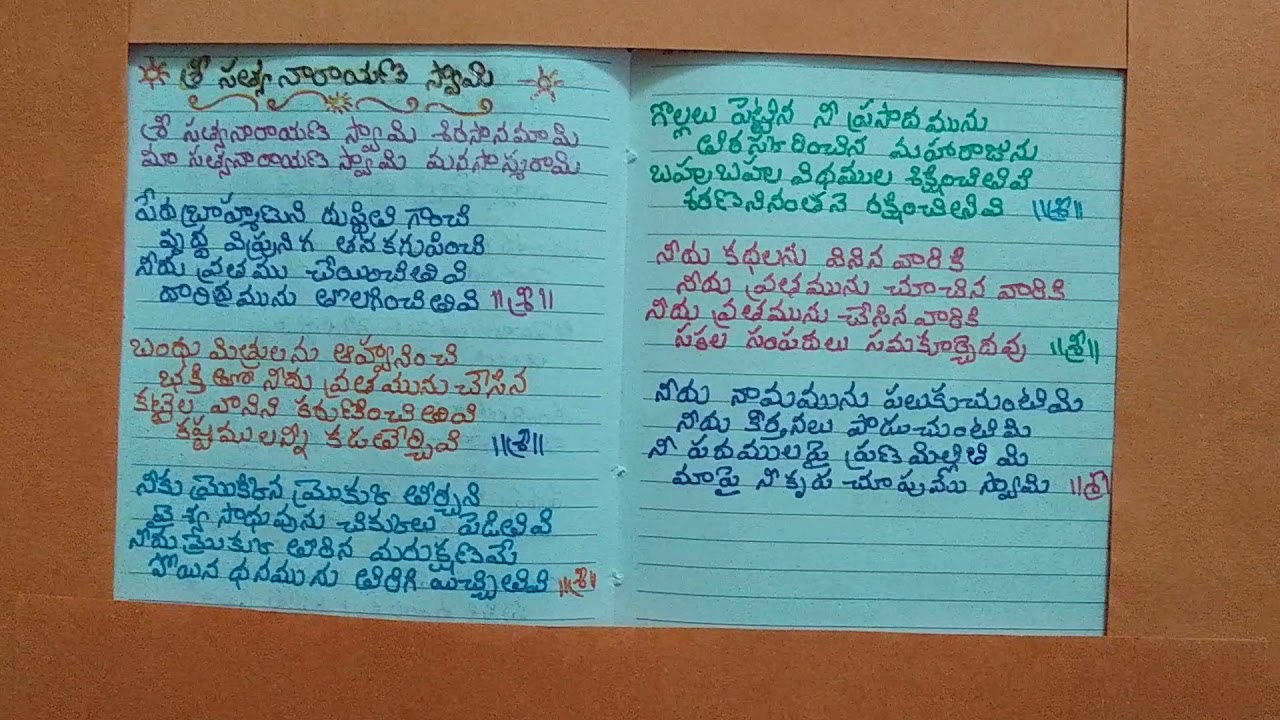 శ్రీ సత్యనారాయణ స్వామి
శ్రీ సత్యనారాయణ స్వామి శిరసానమామి
మా సత్యనారాయణ స్వామి మనసాస్మరామి
పేదబ్రాహ్మణుని దుస్థితి గాంచి
వృద్ధ విప్రునిగ తనకగుపించి
నీదు వ్రతము చేయించితివి
దారిద్రమును తొలగించితివి ||శ్రీ||
బంధు మిత్రులను ఆహ్వానించి
భక్తితో నీదు వ్రతమును చేసిన
కట్టెల వానిని కరుణించితివి
కష్టములన్ని కడతేర్చివి ||శ్రీ||
నీకు మ్రొక్కిన మ్రొకుకి తీర్చని
వైశ్య సాధువును చికుకిలు పెడితివి
నీదు మ్రొకుకి తీరిన మరుక్షణమే
పోయిన ధనమును తిరిగి యిచ్చితివి ||శ్రీ||
గొల్లలు పెట్టిన నీ ప్రసాదమును
తిరస్కరించిన మహారాజును
బహుబహుల విధముల శిక్షించితివి
శరణనినంతనె రక్షించితివి ||శ్రీ||
నీదు కథలను వినిన వారికి
నీదు వ్రతమును చూచిన వారికి
నీదు వ్రతమును చేసిన వారికి
సకల సంపదలు సమకూర్చెదవు ||శ్రీ||
నీదు నామమును పలుకుచుంటిమి
నీదు కీర్తనలు పాడుచుంటిమి
నీ పదములపై ప్రణమిల్లితిమి
మాపై నీ కృప చూపువోయి స్వామి ||శ్రీ||